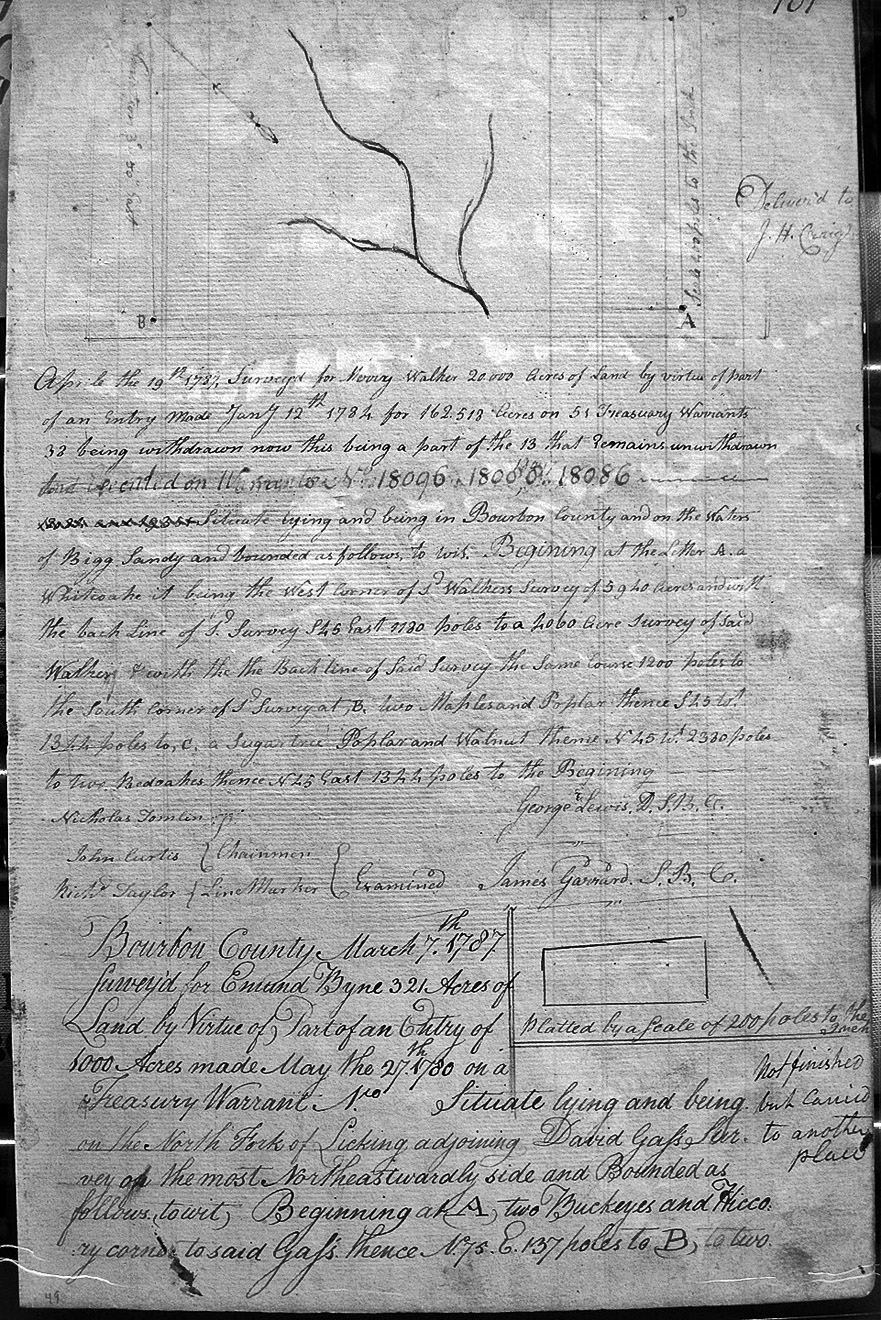 101
D
Delivered to
J. H. Craig
Scale 400 poles to the Inch
B
A
Aprile the 19th 1787 Survey'd for Merry Walker 20.000 Acres of Land by virtue of part
of an Entry Made Jany 12th 1784 for 162.518 Acres on 51 Treasuary Warrants
38 being withdrawn now this being a part of the 13 that Remains unwithdrawn
and entered on Warrants No. 18096 18086
Situate lying and being in Bourbon County and on the Waters
of Bigg Sandy and bounded as follows, to wit. Begining at the Letter A. a
Whiteoake it being the West Corner of Sd Walkers Survey of 5940 Acres and with
the back Line of Sd Survey S45 East 1130 poles to a 4060 Acre Survey of Said
Walkers & with the the Back line of Said Survey the Same Course 1200 poles to
the South Corner of Sd Survey at B. two Maples and Poplar thence S45 Wt
1344 poles to, C. a Sugartree Poplar and Walnut thence N45 Wt 2330 poles
to two Redoakes thence N45 East 1344 poles to the Begining
George Lewis. D. S. B. C.
Nicholas Tomlin
John Curtis } Chainmen
Richd Taylor { Line Marker { Examined James Garrard. S. B. C.
Bourbon County March 7th 1787
Survey'd for Emund Byne 321 Acres of
Land by Virtue of Part of an Entry of
5000 Acres made May the 27th 1780 on a
Treasury Warrant No Situate lying and being
on the North Fork of Licking adjoining David Gass Sur-
vey on the most Northeastwardly side and Bounded as
follows, to wit, Beginning at A, two Buckeyes and Hicco-
ry corner to said Gass. thence N75. E. 137 poles to B, to two
Platted by a Scale of 200 poles to the
Inch
Not finished
but Carried
to another
place
49